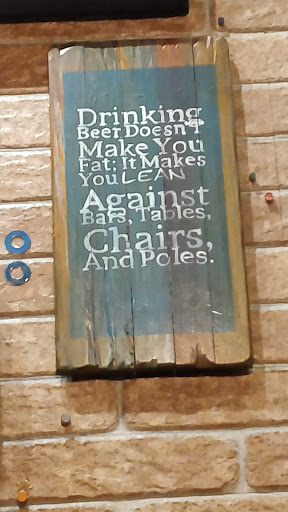 Drinking
Beer Doesn't
Make You
Fat; It Makes
You LEAN
Against
Bars, Tables,
Chairs,
And Poles.